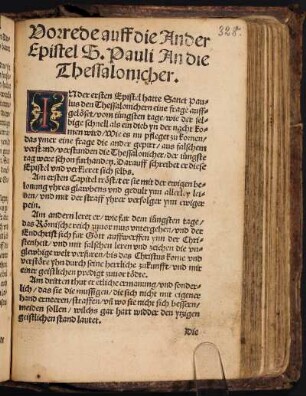 328.
Vorrede auff die Ander
Epistel S. Pauli An die
Thessalonicher.
IN der ersten Epistel hatte Sanct Pau
lus den Thessalonichern eine frage auff
gelöset, vom iüngsten tage, wie der sel
bige schnell als ein dieb yn der nacht ko
men wird, Wie es nu pfleget zu komen,
das ymer eine frage die ander gepirt, aus falschem
verstand, verstunden die Thessalonicher, der iüngste
tag were schon furhanden, Darauff schreibet er diese
Epistel vnd verkleret sich selbs.
Am ersten Capitel tröstet er sie mit der ewigen be
lonung yhres glawbens vnd gedult ynn allerley lei
den, vnd mit der straff yhrer verfolger ynn ewiger
pein.
Am andern leret er, wie fur dem iüngsten tage,
das Römisch reich zuuor mus vntergehen, vnd der
Endchrist sich fur Gott auffwerffen ynn der Chri
stenheit, vnd mit falschen leren vnd zeichen die vn
glewbige welt verfuren, bis das Christus kome vnd
verstöre yhn durch seine herrliche zukunfft, vnd mit
einer geistlichen predigt zuuor tödte.
Am dritten thut er etliche ermanung, vnd sonder
lich, das sie die mussigen, die sich nicht mit eigener
hand erneeren, straffen, vñ wo sie nicht sich bessern,
meiden sollen, wilchs gar hart widder den ytzigen
geistlichen stand lautet.
Die